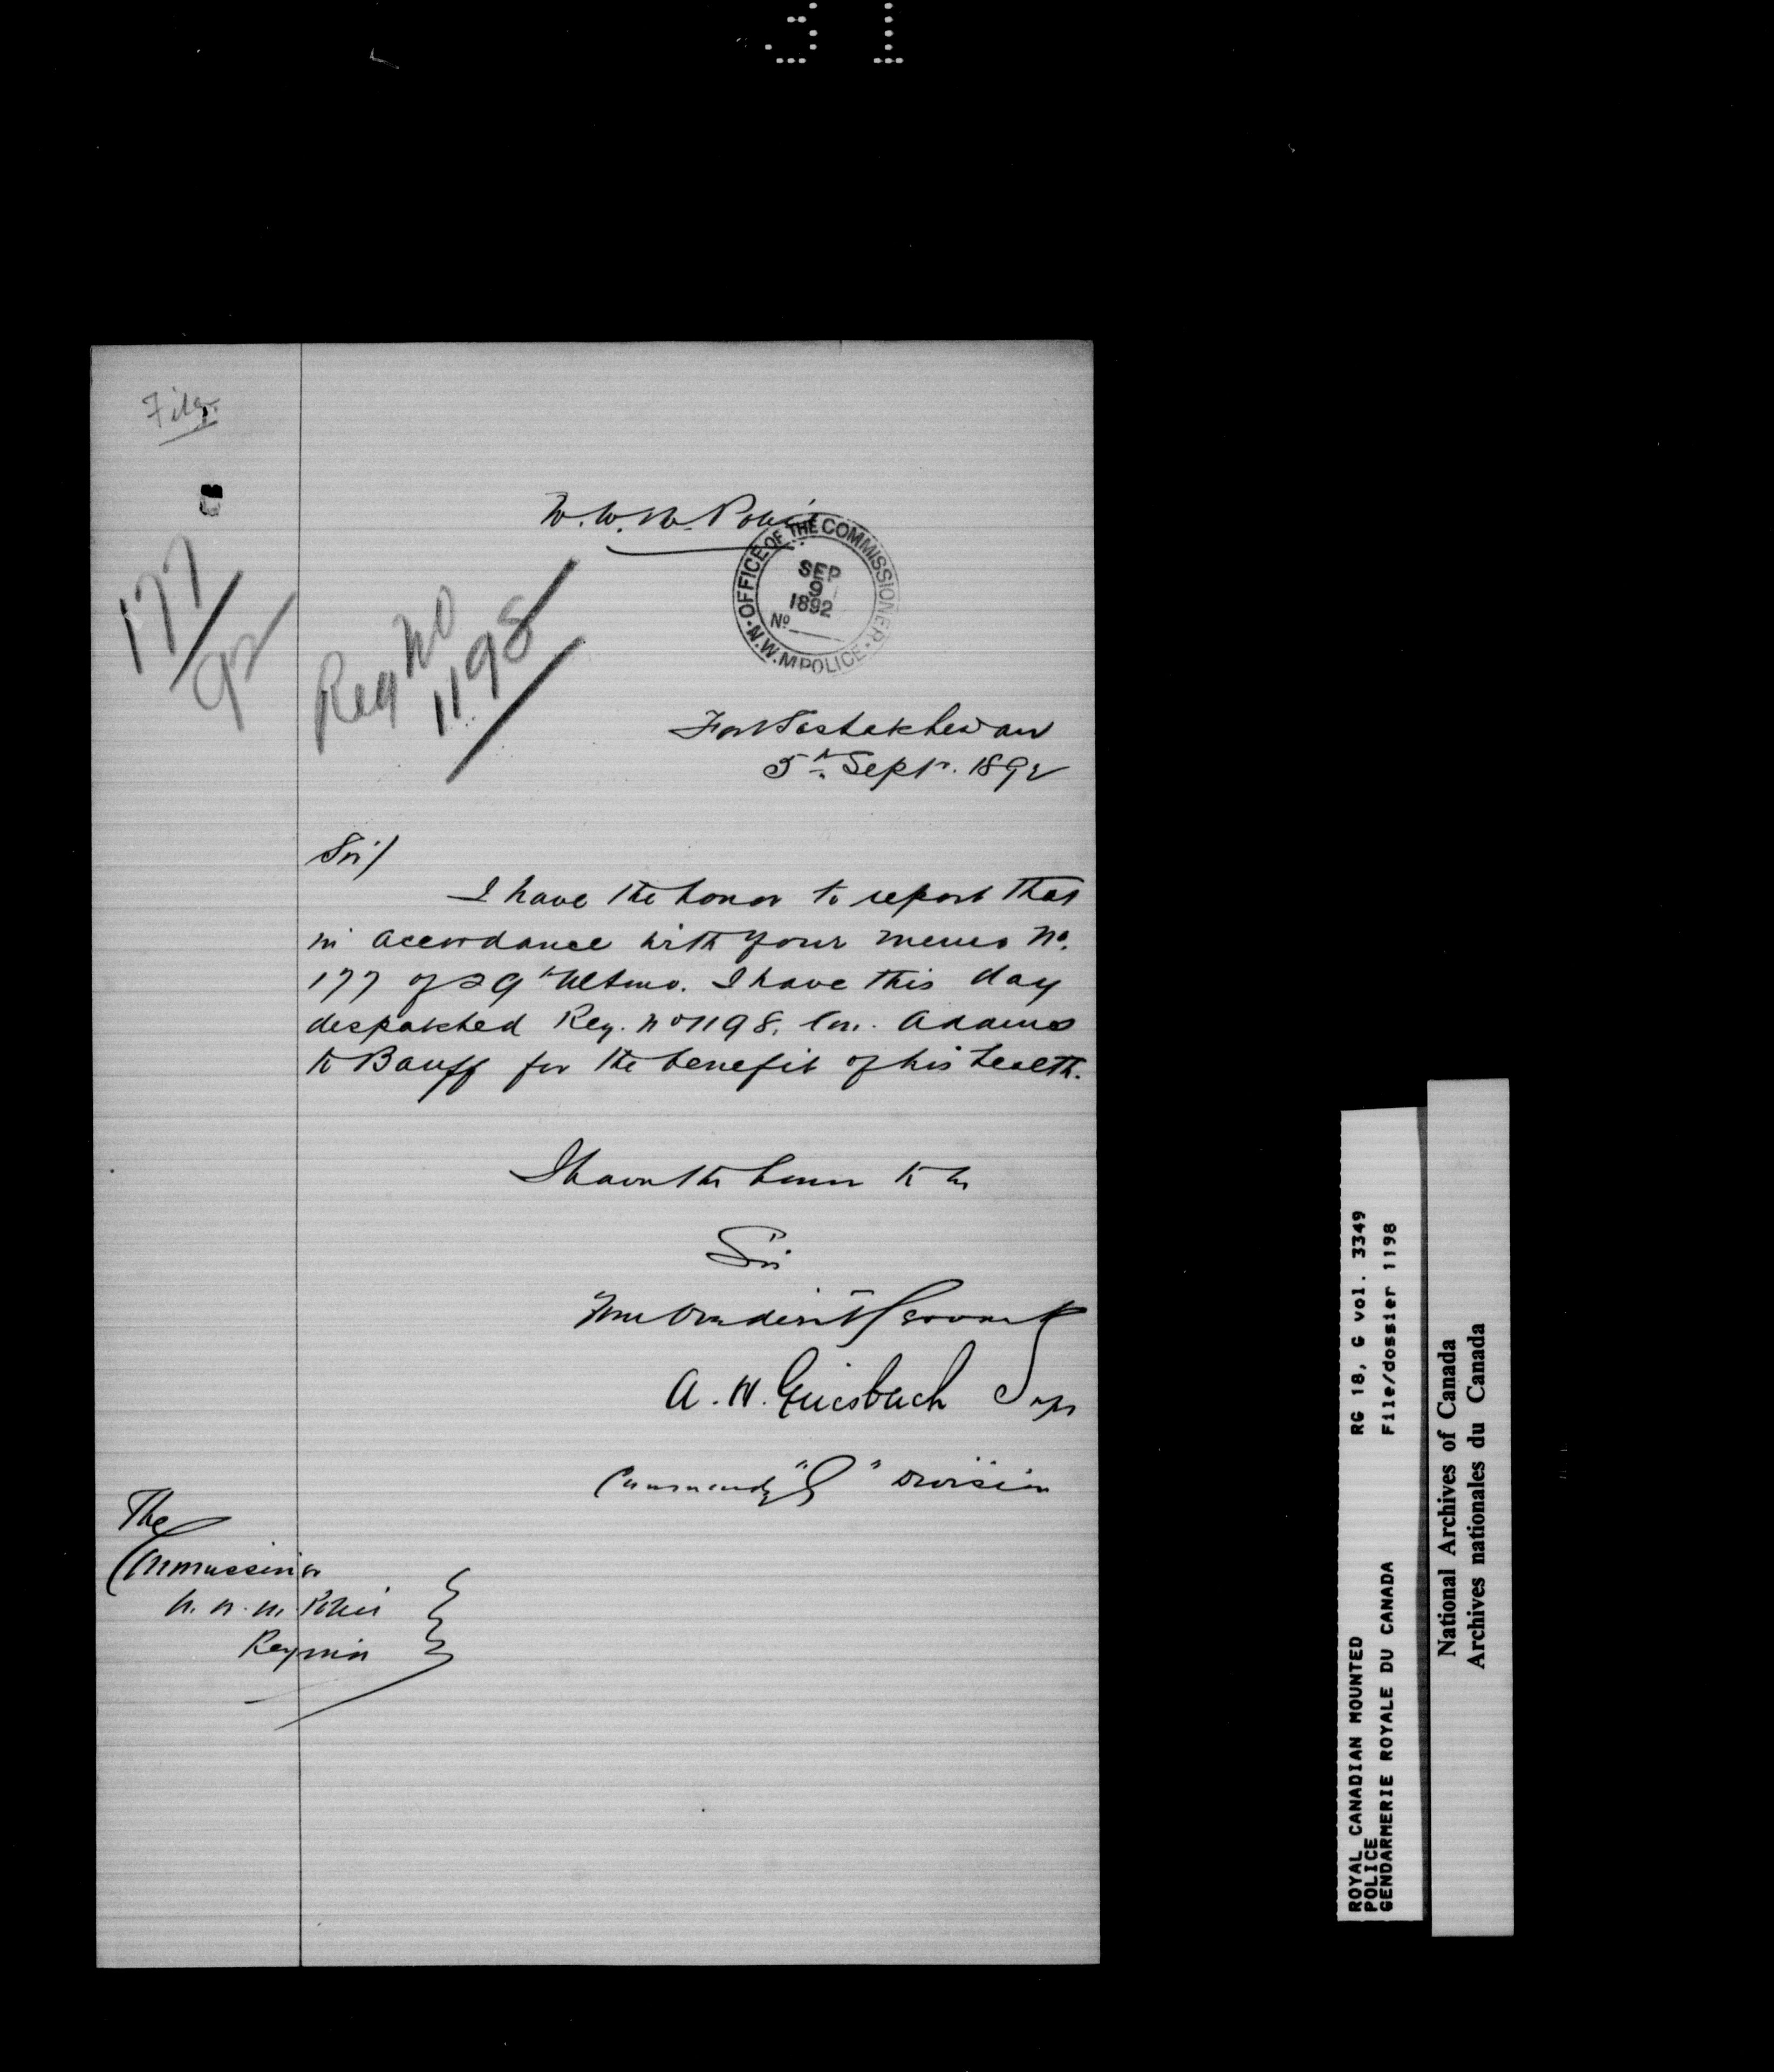 31
File
N.W.M. Police
OFFICE OF THE COMMISSIONER
SEP
9
1892
No
N.W.M POLICE
177/92
Reg No
1198
Fort Saskatchewan
5th Sept. 1892
Sir/
I have the honor to report that
in accordance with your memo No.
177 of 29th Ultimo. I have this day
despatched Reg. No 1198. Con. Adams
to Banff for the benefit of his health.
I have the honor to be
Sir
Your Obedient Servant
A. H. Griesbach Supt
Commandg "G" Division
The
Commissioner
N. W. M. Police
Regina
ROYAL CANADIAN MOUNTED
POLICE
GENDARMERIE ROYALE DU CANADA
RG 18, G vol. 3349
File/dossier 1198
National Archives of Canada
Archives nationales du Canada